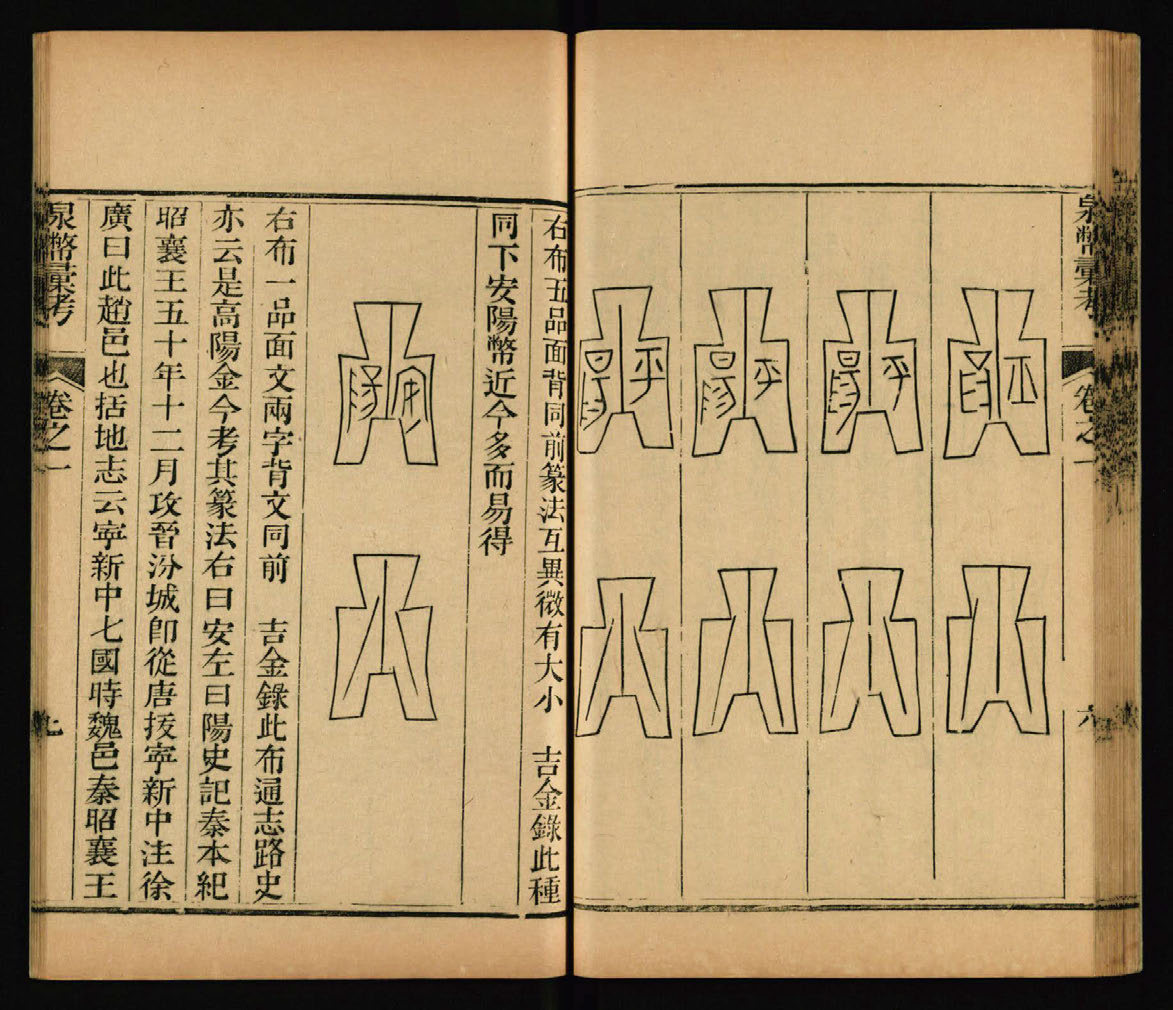 泉幣彙考
卷之一
六
右布五品面背同前篆法互異微有大小 吉金錄此種
同下安陽幣近今多而易得
右布一品面文兩字背文同前 吉金錄此布通志路史
亦云是高陽金今考其篆法右曰安左曰陽史記秦本紀
昭襄王五十年十二月攻晉汾城即從唐拔寧新中注徐
廣曰此趙邑也括地志云寧新中七國時魏邑秦昭襄王
泉幣彙考
卷之一
七